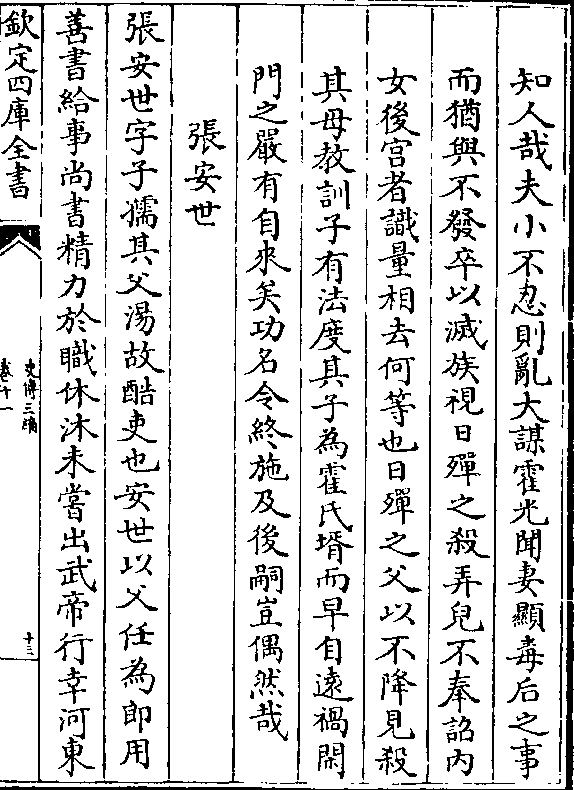 知人哉夫小不忍則亂大謀霍光聞妻顯毒后之事
而猶與不發卒以滅族視日殫之殺弄兒不奉詔内
女後宫者識量相去何等也日殫之父以不降見殺
其母教訓子有法度其子為霍氏壻而早自遠禍閑
門之嚴有自來矣功名令終施及後嗣豈偶然哉
張安世
張安世字子孺其父湯故酷吏也安世以父任為郎用
善書給事尚書精力於職休沐未嘗出武帝行幸河東
欽定四庫全書
史傳三編
卷十一
十三